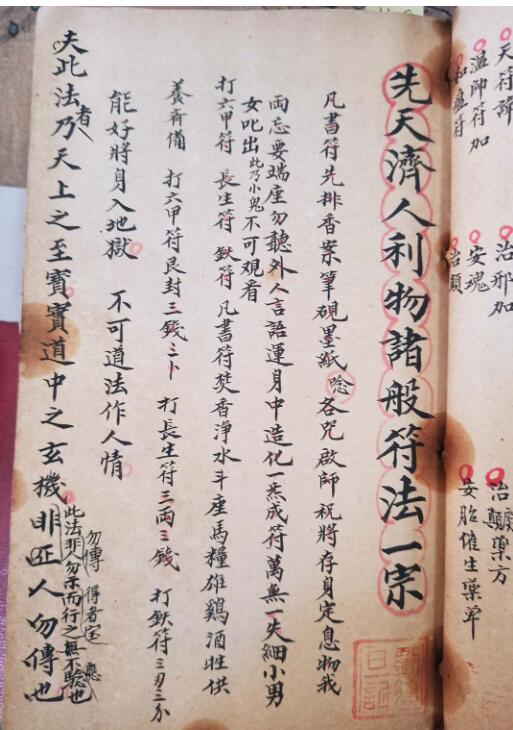 天符諱 治邪加 治顛藥方
溫帥符加 安魂 安胎催生藥單
先天濟人利物諸般符法一宗
凡書符先排香案筆硯墨紙唸各咒啟師祝將存身定息物我
兩忘要端座勿聽外人言語運身中造化一炁成符萬無一失細小男
女叱出此乃小鬼不可觀看
打六甲符 長生符 鈥符 凡書符焚香淨水斗座馬糧雄鷄酒牲供
養斉備 打六甲符艮封三錢三卜 打長生符三両三錢 打鈥符三刃三分
能好將身入地獄 不可道法作人情
勿傳 得者宝 應
此法非人勿示而行之無不驗也
夫此法者乃天上之至寶實道中之玄機非匠人勿傳也